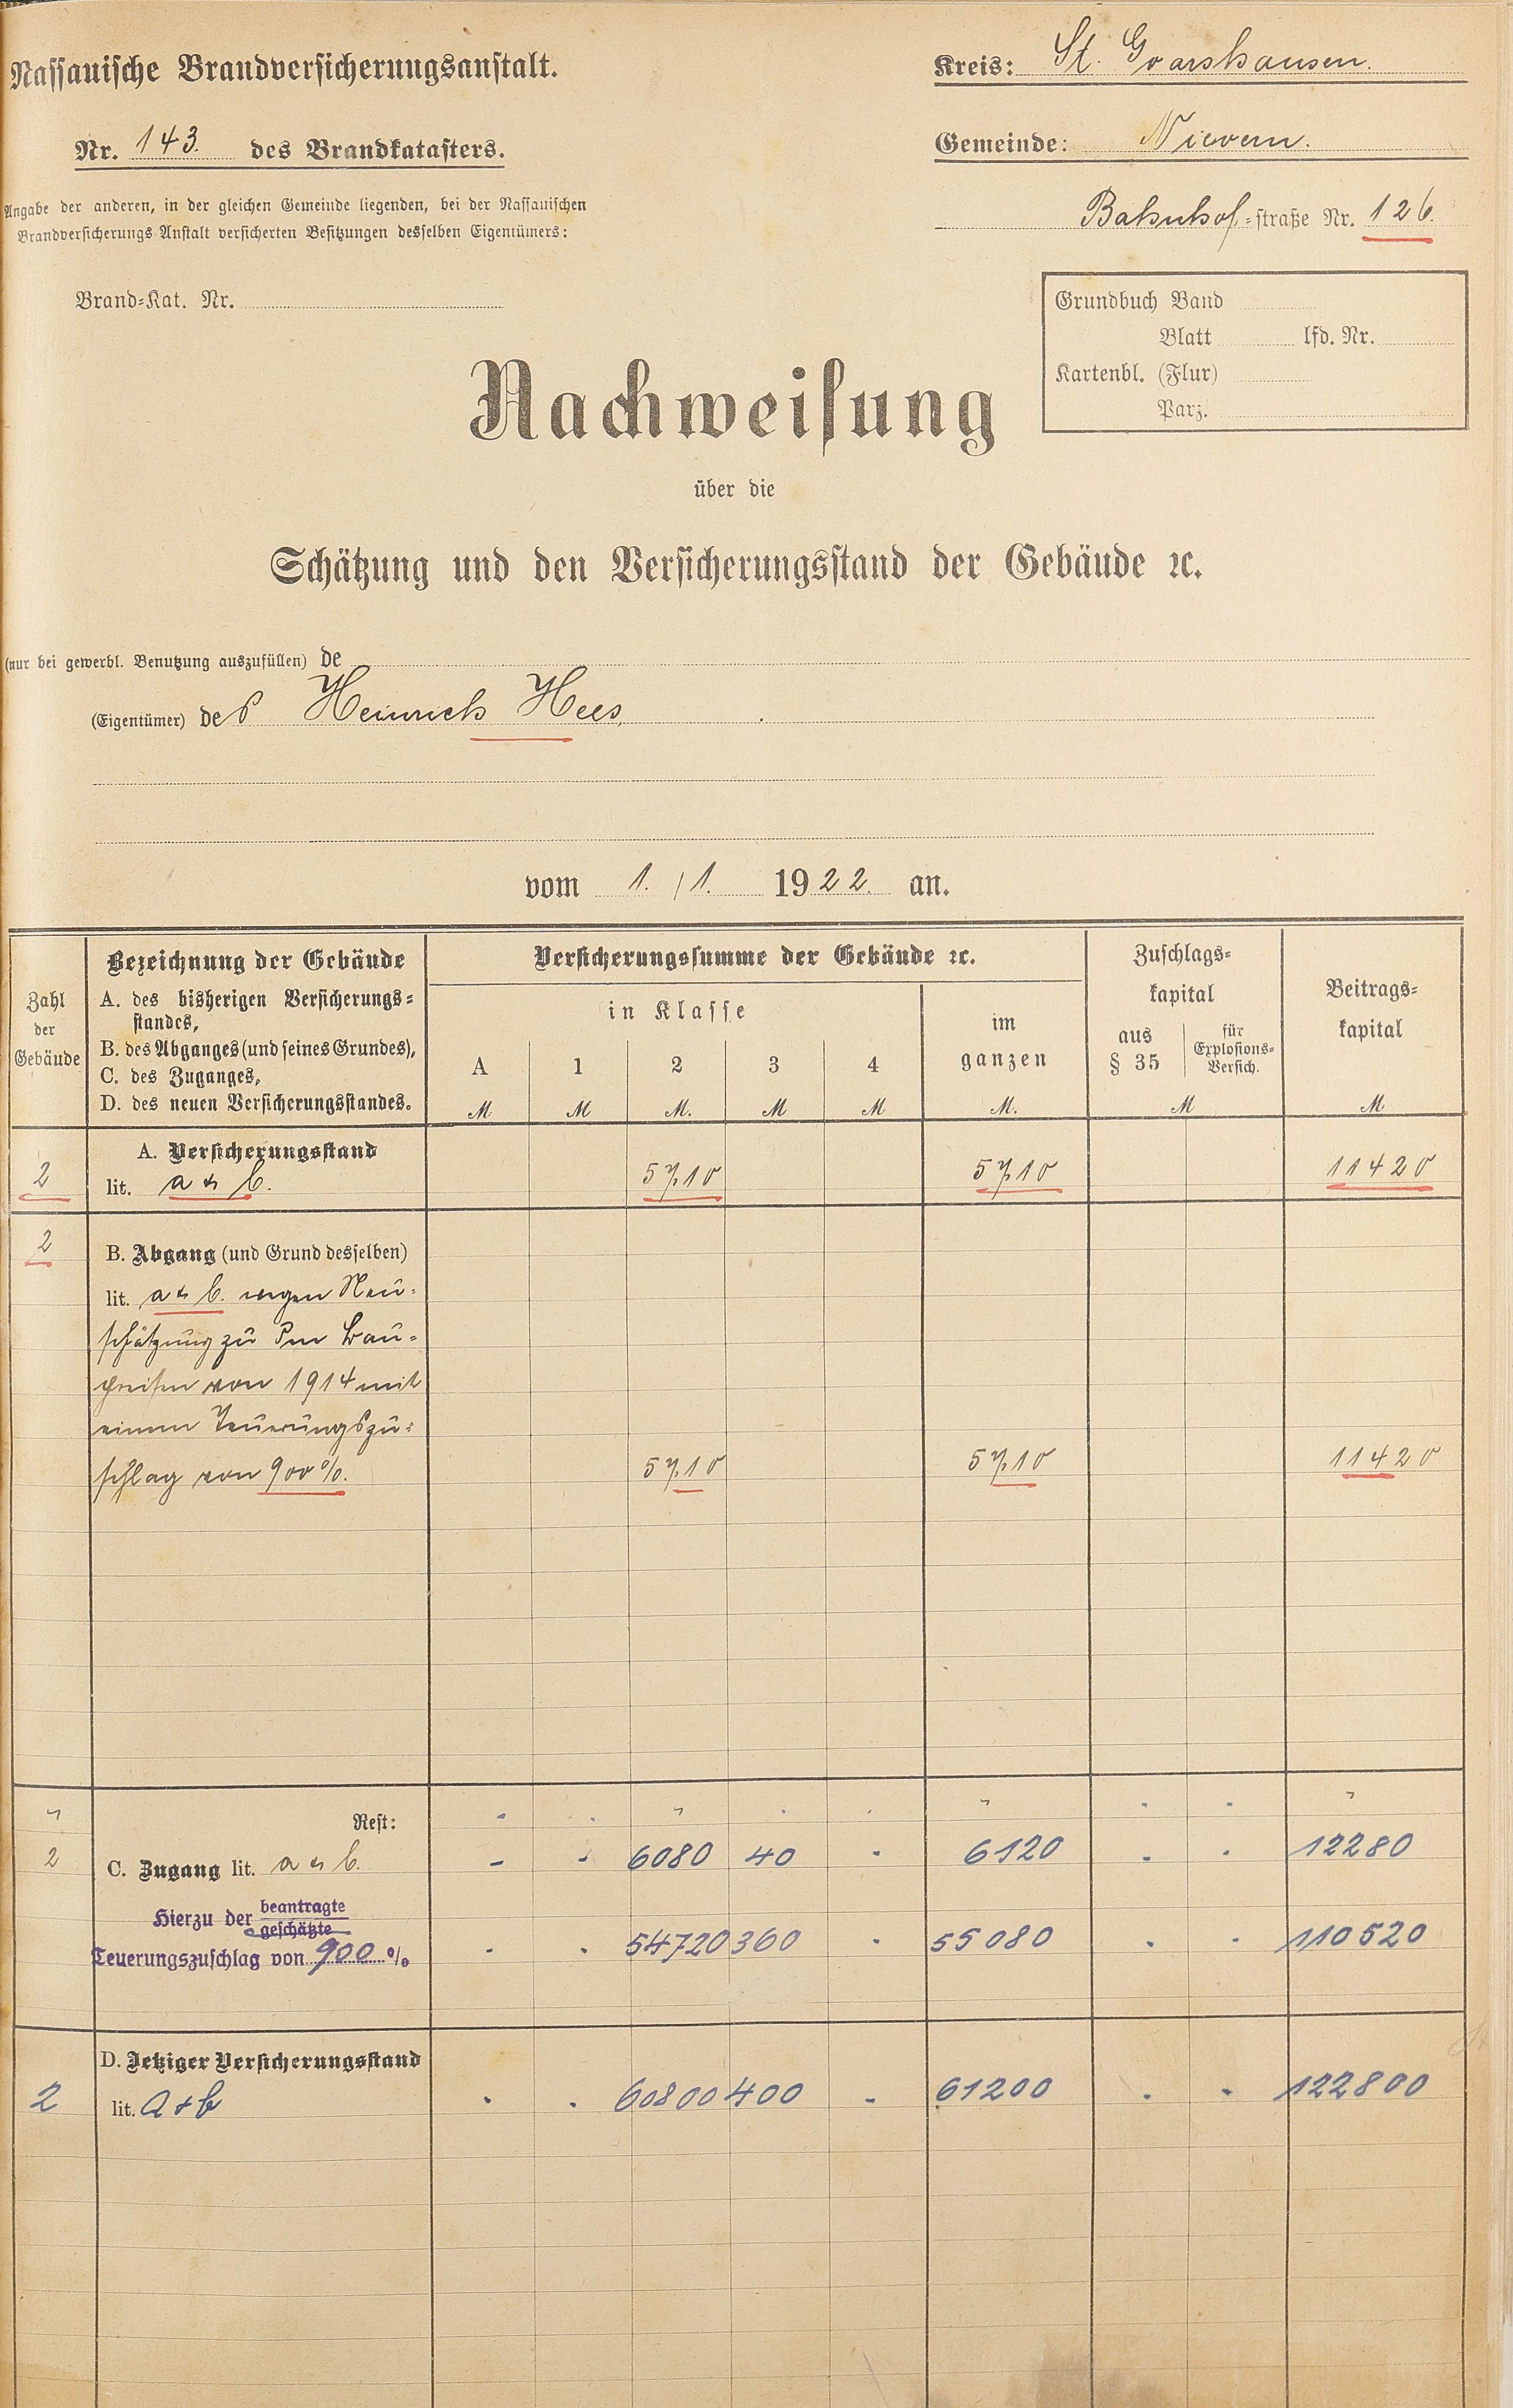 Nassauische Brandversicherungsanstalt.
Nr. 143. des Brandkatasters.
Angabe der anderen, in der gleichen Gemeinde liegenden, bei der Nassauischen
Brandversicherungs-Anstalt versicherten Besitzungen desselben Eigentümers:
Brand-Kat. Nr.
Kreis: St. Goarshausen.
Gemeinde: Nievern.
Bahnhof-straße Nr. 126.
Grundbuch Band
Blatt lfd. Nr.
Kartenbl. (Flur)
Parz.
Nachweisung
über die
Schätzung und den Versicherungsstand der Gebäude ꝛc.
(nur bei gewerbl. Benutzung auszufüllen) de
(Eigentümer) des Heinrich Hees.
vom 1./1. 1922. an.
Zahl
der
Gebäude
Bezeichnung der Gebäude
A. des bisherigen Versicherungs-
standes,
B. des Abganges (und seines Grundes),
C. des Zuganges,
D. des neuen Versicherungsstandes.
Versicherungssumme der Gebäude ꝛc.
in Klasse
A 1 2 3 4
M M M. M M
im
ganzen
M.
Zuschlags-
kapital
aus
§ 35
für
Explosions-
Versich.
M
Beitrags-
kapital
M
A. Versicherungsstand
2 lit. a & b. 5710 5710 11420
2 B. Abgang (und Grund desselben)
lit. a & b. wegen Neu-
schätzung zu den Bau-
preisen von 1914 mit
einem Teuerungszu-
schlag von 900 %. 5710 5710 11420
" Rest: - . " . . " . . "
2 C. Zugang lit. a & b. - - 6080 40 - 6120 . . 12280
Hierzu der beantragte
geschätzte
Teuerungszuschlag von 900 % . . 54720 360 - 55080 . . 110520
D. Jetziger Versicherungsstand
2 lit. a & b . . 60800 400 - 61200 . . 122800